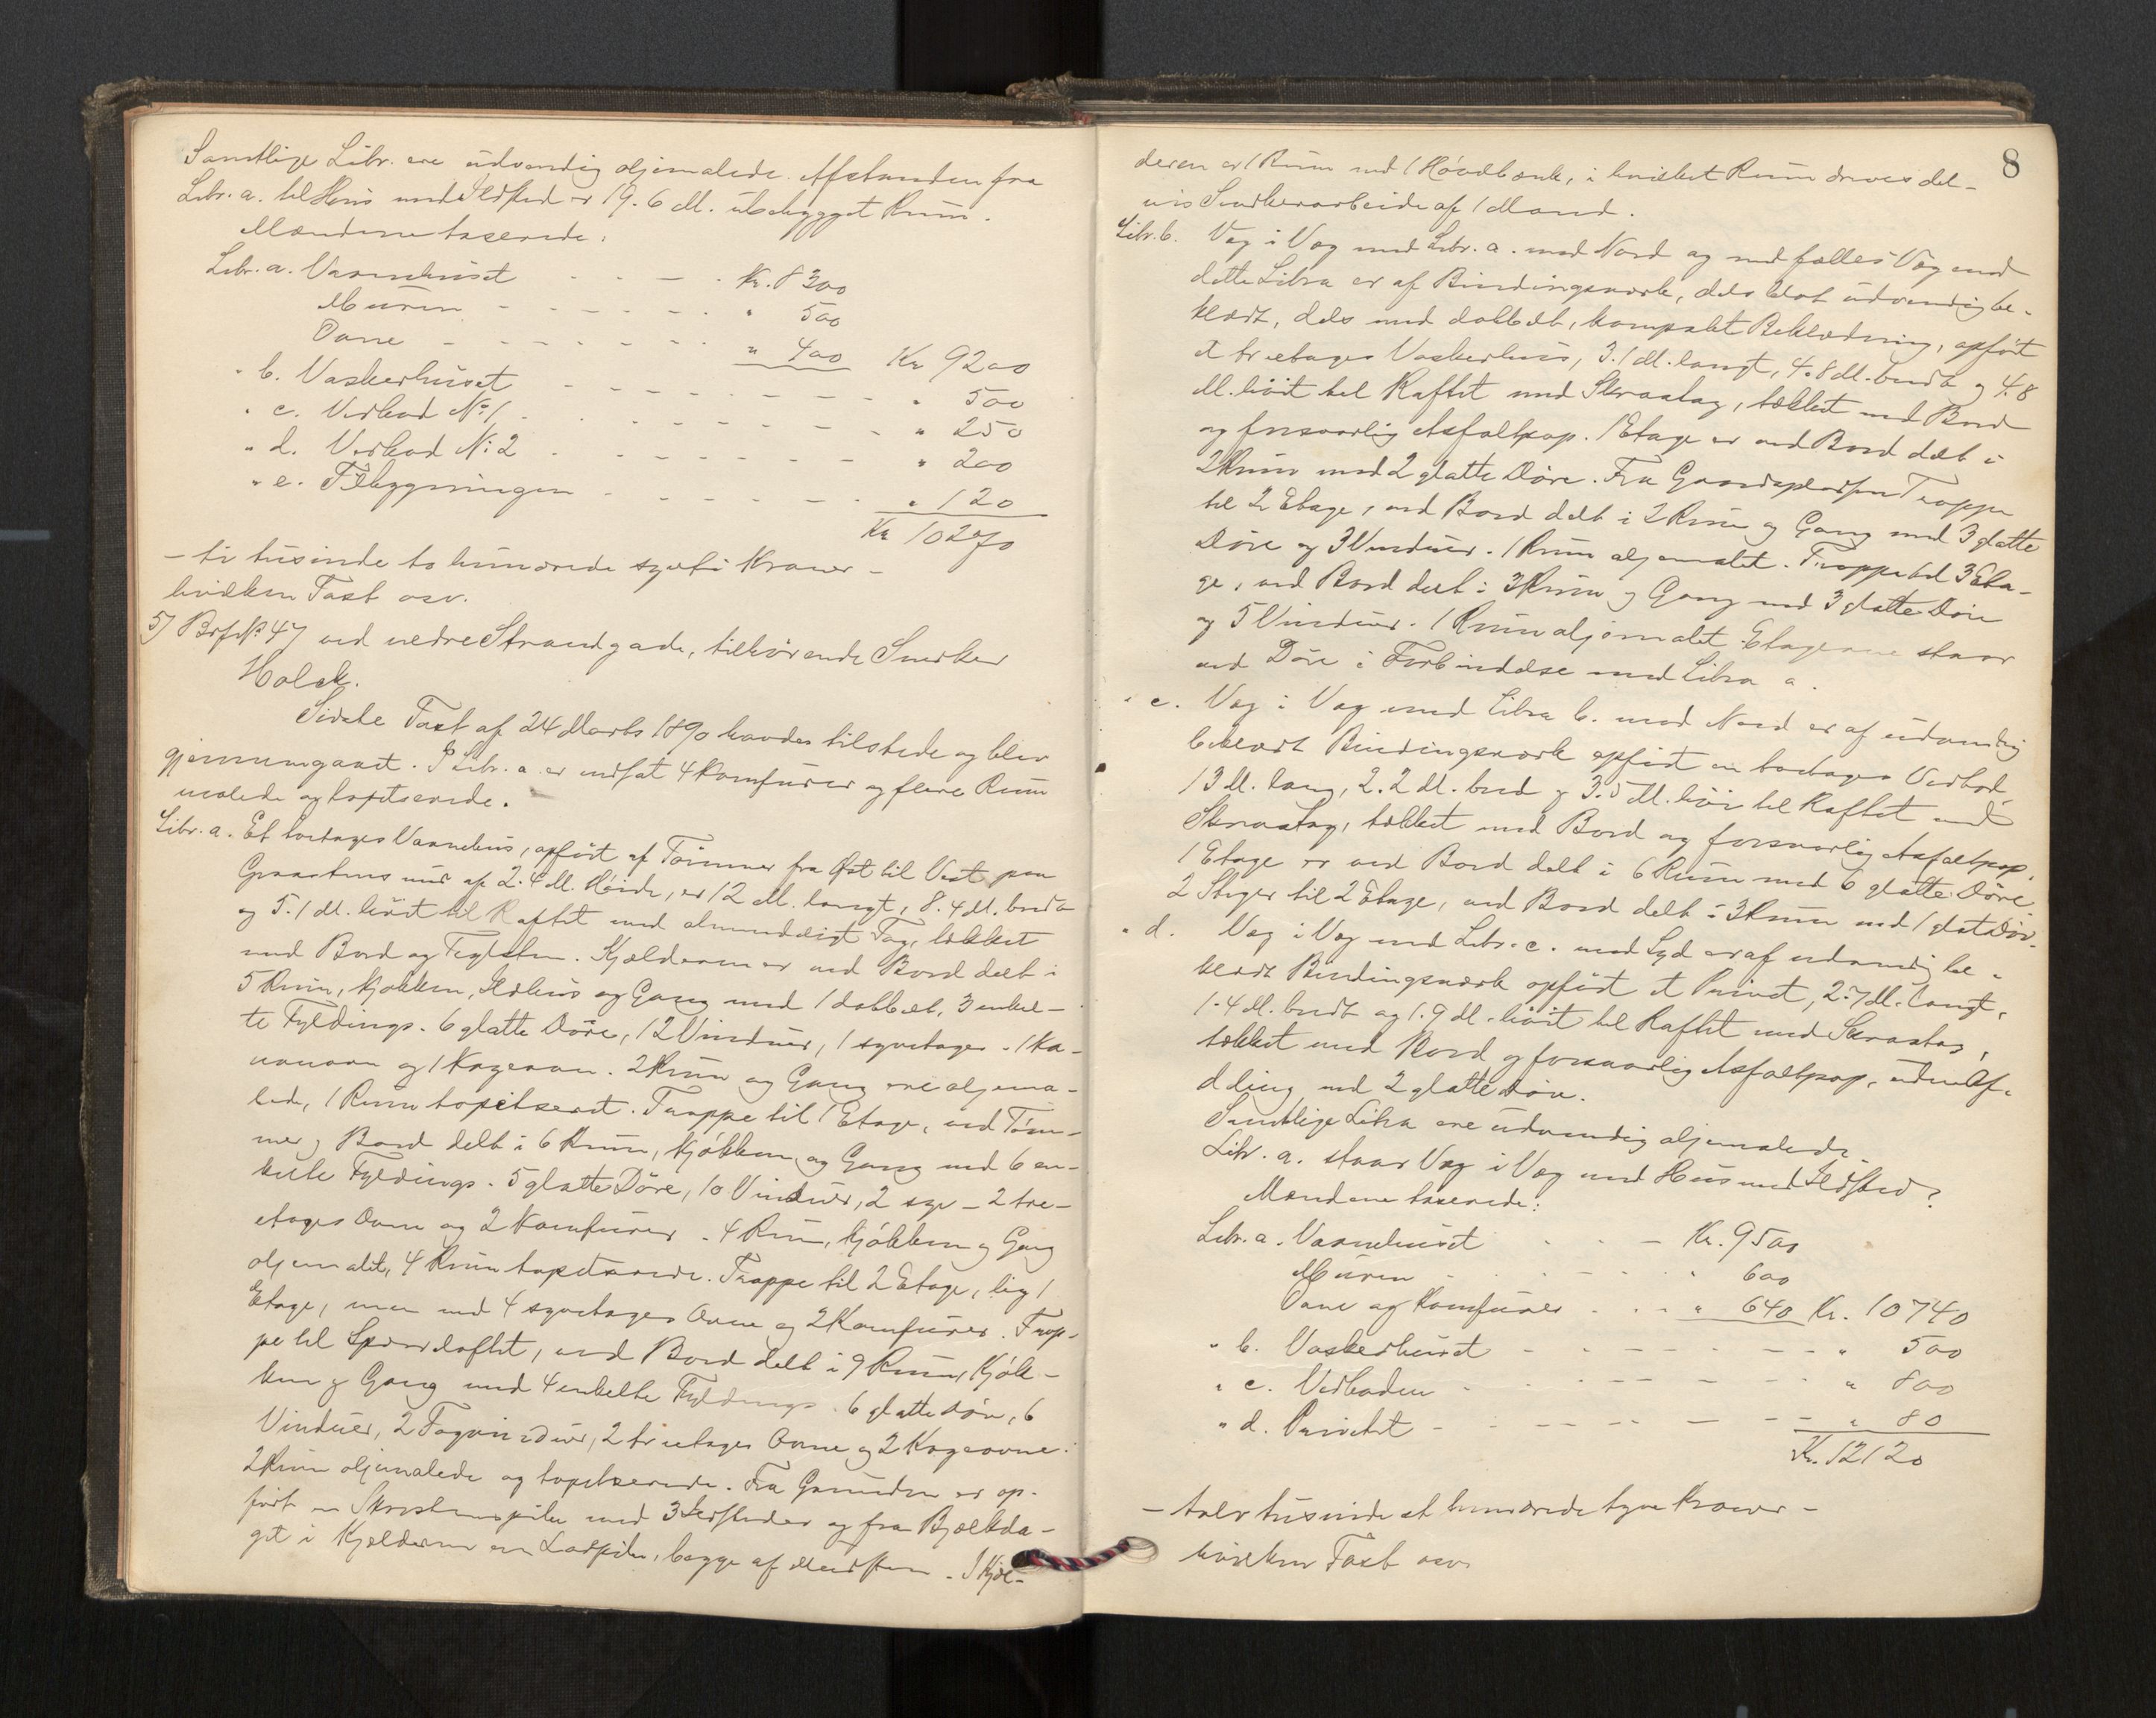 Samtlige Litr. ere udvendig oljemalede. Afstanden fra
Litr. a. til Hus med Ildsted er 19.6 M. ubebygget Rum.
Mændene taxerede:
Litr. a. Vaanehuset - - - Kr. 8300
Muren - - - - - " 500
Ovne - - - - - " 400 Kr 9200
" b. Vaskerhuset - - - - - " 500
" c. Vedbod No 1 - - - - - " 250
" d. Vedbod No: 2 - - - - - " 200
" e. Tilbygningen - - - - - " 120
Kr 10270
- ti tusinde to hundrede sytti Kroner -
hvilken Taxt osv.
5) Brf. No. 47 ved nedre Strandgade, tilhörende Snedker
Holck.
Sidste Taxt af 24 Marts 1890 havdes tilstede og blev
gjennemgaaet. I Litr. a er indsat 4 Komfurer og flere Rum
malede og tapetserede.
Litr. a. Et toetages Vaanehus, opfört af Tömmer fra Öst til Vest paa
Graastensmur af 2.4 M. Höide, er 12 M. langt, 8.4 M. bredt
og 5.1 M. höit til Raftet med almindeligt Tag, tækket
med Bord og Teglsten. Kjælderen er ved Bord delt i
5 Rum, Kjökken, Ildhus og Gang med 1 dobbelt, 3 enkel-
te Fyldings- 6 glatte Döre, 12 Vinduer, 1 syvetages - 1 Ka-
nonovn og 1 Kogeovn. 2 Rum og Gang ere oljema-
lede, 1 Rum tapetseret. Trappe til 1 Etage, ved Töm-
mer og Bord delt i 6 Rum, Kjökken og Gang med 6 en-
kelte Fyldings- 5 glatte Döre, 10 Vinduer, 2 syv - 2 tre-
etages Ovne og 2 Komfurer. 4 Rum, Kjökken og Gang
oljemalet, 4 Rum tapetserede. Trappe til 2 Etage, lig 1
Etage, men med 4 syvetages Ovne og 2 Komfurer. Trap-
pe til Sperrelofttet, ved Bord delt i 9 Rum, Kjök-
ken og Gang med 4 enkelte Fyldings- 6 glatte Döre, 6
Vinduer, 2 Tagvinduer, 2 treetages Ovne og 2 Kogeovne.
2 Rum oljemalede og tapetserede. Fra Grunden er op-
fört en Skorstenspibe med 3 Ildsteder og fra Bjælkela-
get i Kjælderen en Løspibe, begge af Mursten. I Kjæl-
8
deren er 1 Rum med 1 Hövlbænk, i hvilket Rum drives del-
vis Snedkerarbeide af 1 Mand.
Litr. b. Væg i Væg med Litr. a. mod Nord og med fælles Væg med
dette Litra er af Bindingsværk, dels blot udvendig be-
klædt, dels med dobbelt, kompakt Beklædning, opfört
et treetages Vaskerhus, 3.1 M. langt, 4.8 M. bredt og 4.8
M. höit til Raftet med Skraatag, tækket med Bord
og forsvarlig Asfaltpap. 1 Etage er ved Bord delt i
2 Rum med 2 glatte Döre. Fra Gaardspladsen Trappe
til 2 Etage, ved Bord delt i 2 Rum og Gang med 3 glatte
Döre og 3 Vinduer. 1 Rum oljemalet. Trappe til 3 Eta-
ge, ved Bord delt i 3 Rum og Gang med 3 glatte Döre
og 5 Vinduer. 1 Rum oljemalet. Etagerne staar
ved Döre i Forbindelse med Litra a.
" c. Væg i Væg med Litra b. mod Nord er af udvendig
beklædt Bindingsværk opfört en toetages Vedbod
13 M. lang, 2.2 M. bred og 3.5 M. höi til Raftet med
Skraatag, tækket med Bord og forsvarlig Asfaltpap.
1 Etage er ved Bord delt i 6 Rum med 6 glatte Döre
2 Stiger til 2 Etage, ved Bord delt i 3 Rum med 1 glat Dör.
" d. Væg i Væg med Litr. c. mod Syd er af udvendig be-
klædt Bindingsværk opfört et Privet, 2.7 M. langt,
1.4 M. bredt og 1.9 M. höit til Raftet med Skraatag,
tækket med Bord og forsvarlig Asfaltpap, uden Af-
deling med 2 glatte Döre.
Samtlige Litra ere udvendig oljemalede.
Litr. a. staar Væg i Væg med Hus med Ildsted?
Mændene taxerede:
Litr. a. Vaanehuset - - - Kr. 9500
Muren - - - - " 600
Ovne og Komfurer - - - " 640 Kr. 10740
" b. Vaskerhuset - - - - - " 500
" c. Vedboden - - - - - " 800
" d. Privetet - - - - - " 80
Kr. 12120
- tolv tusinde et hundrede tyve Kroner -
hvilken Taxt osv.